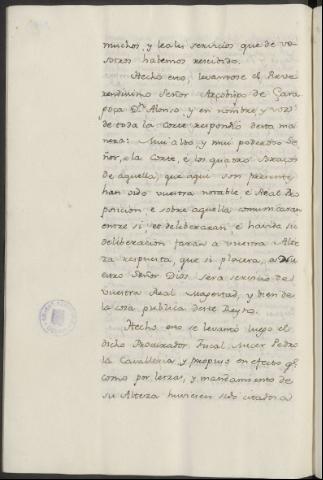 muchos, y leales servicios que de vo-
sotros habemos rescibido.
Hecho esto, levantose el Reve-
rendisimo Señor Arçobispo de Çara
goça Dn. Alonso y en nombre, y voz
de toda la corte respondio desta ma
nera: Muy alto, y muy poderoso Se
ñor, e la Corte, e los quatro Braços
de aquella, que aqui son presentes
han oido vuestra notable e Real Pro
posicion e sobre aquella comunicaran
entre si, et deliberaran e havida su
deliberacion faran a vuestra Alte
za respuesta, que si placera, a Nu
estro Señor Dios sera servicio de
vuestra Real Magestad, y bien de
la cosa publica deste Reyno.
Hecho esto se levantó luego el
dicho Procurador Fiscal Micer Pedro
la Cavalleria y propuso en efecto q.
como por letras, y mandamiento de
su Alteza huviesen sido citados a